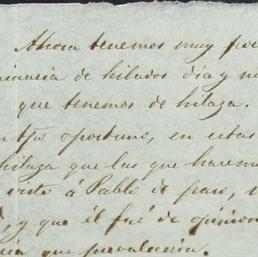 Ahora tenemos muy po
de hilados dia y no
que tenemos de hilaza.
oportuno, en estas
hilaza que las que hacemos
visto á Pablo de paso,
y que él fué de opinion
que prevaleceria.